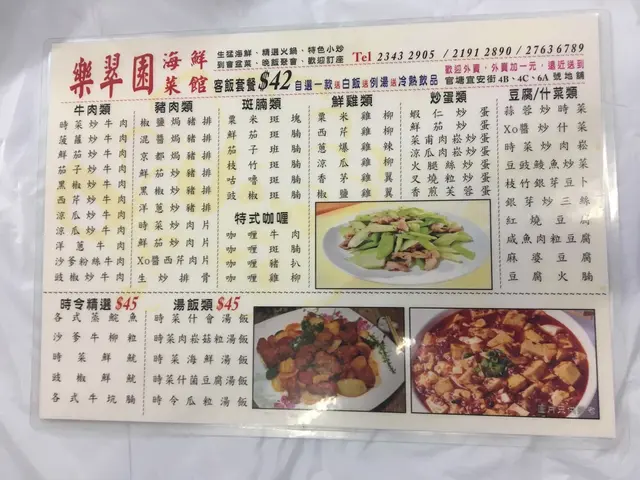 樂翠園
海鮮
菜館
生猛海鮮、精選火鍋、特色小炒
到會盆菜、晚飯聚會、歡迎訂座
Tel 2343 2905 / 2191 2890 / 2763 6789
歡迎外賣，外賣加一元，遠近送到
官塘宜安街4B、4C、6A號地舖
客飯套餐$42 自選一款送白飯送例湯送冷熱飲品
牛肉類
時菜炒牛肉
菠蘿炒牛肉
鮮茄炒牛肉
茄子炒牛肉
黑椒炒牛肉
西芹炒牛肉
涼瓜炒牛肉
涼瓜炒牛
洋蔥牛肉
沙爹粉絲牛肉
豉椒炒牛肉
豬肉類
椒鹽焗豬排
混醬焗豬排
京都焗豬排
鮮茄炒豬排
黑椒炒豬排
洋蔥炒豬排
時菜炒肉片
鮮茄炒肉片
Xo醬西芹肉片
生炒排骨
斑腩類
粟米斑塊
鮮茄斑腩
茄子斑腩
枝竹斑腩
咕嚕斑腩
豉椒斑腩
特式咖喱
咖喱牛肉
咖喱斑腩
咖喱豬扒
咖喱雞柳
鮮雞類
粟米雞柳
西芹雞柳
蔥爆雞辣
涼瓜雞柳
香茅雞翼
椒鹽雞翼
炒蛋類
蝦仁炒蛋
鮮茄炒蛋
菜甫肉崧炒蛋
涼瓜肉崧炒蛋
火腿絲炒蛋
叉燒粒炒蛋
香煎芙蓉蛋
豆腐/什菜類
蒜蓉炒時菜
Xo醬炒什菜
時菜炒肉崧
豆豉鯪魚炒菜
枝竹銀芽豆卜
銀芽炒三絲
紅燒豆腐
咸魚肉粒豆腐
麻婆豆腐
豆腐火腩
時令精選 $45
各式蒸鯇魚
沙爹牛柳粒
時菜鮮魷
豉椒鮮魷
各式牛坑腩
湯飯類 $45
時菜什會湯飯
時菜肉崧菇粒湯飯
時菜海鮮湯飯
時菜什菌豆腐湯飯
時令瓜粒湯飯